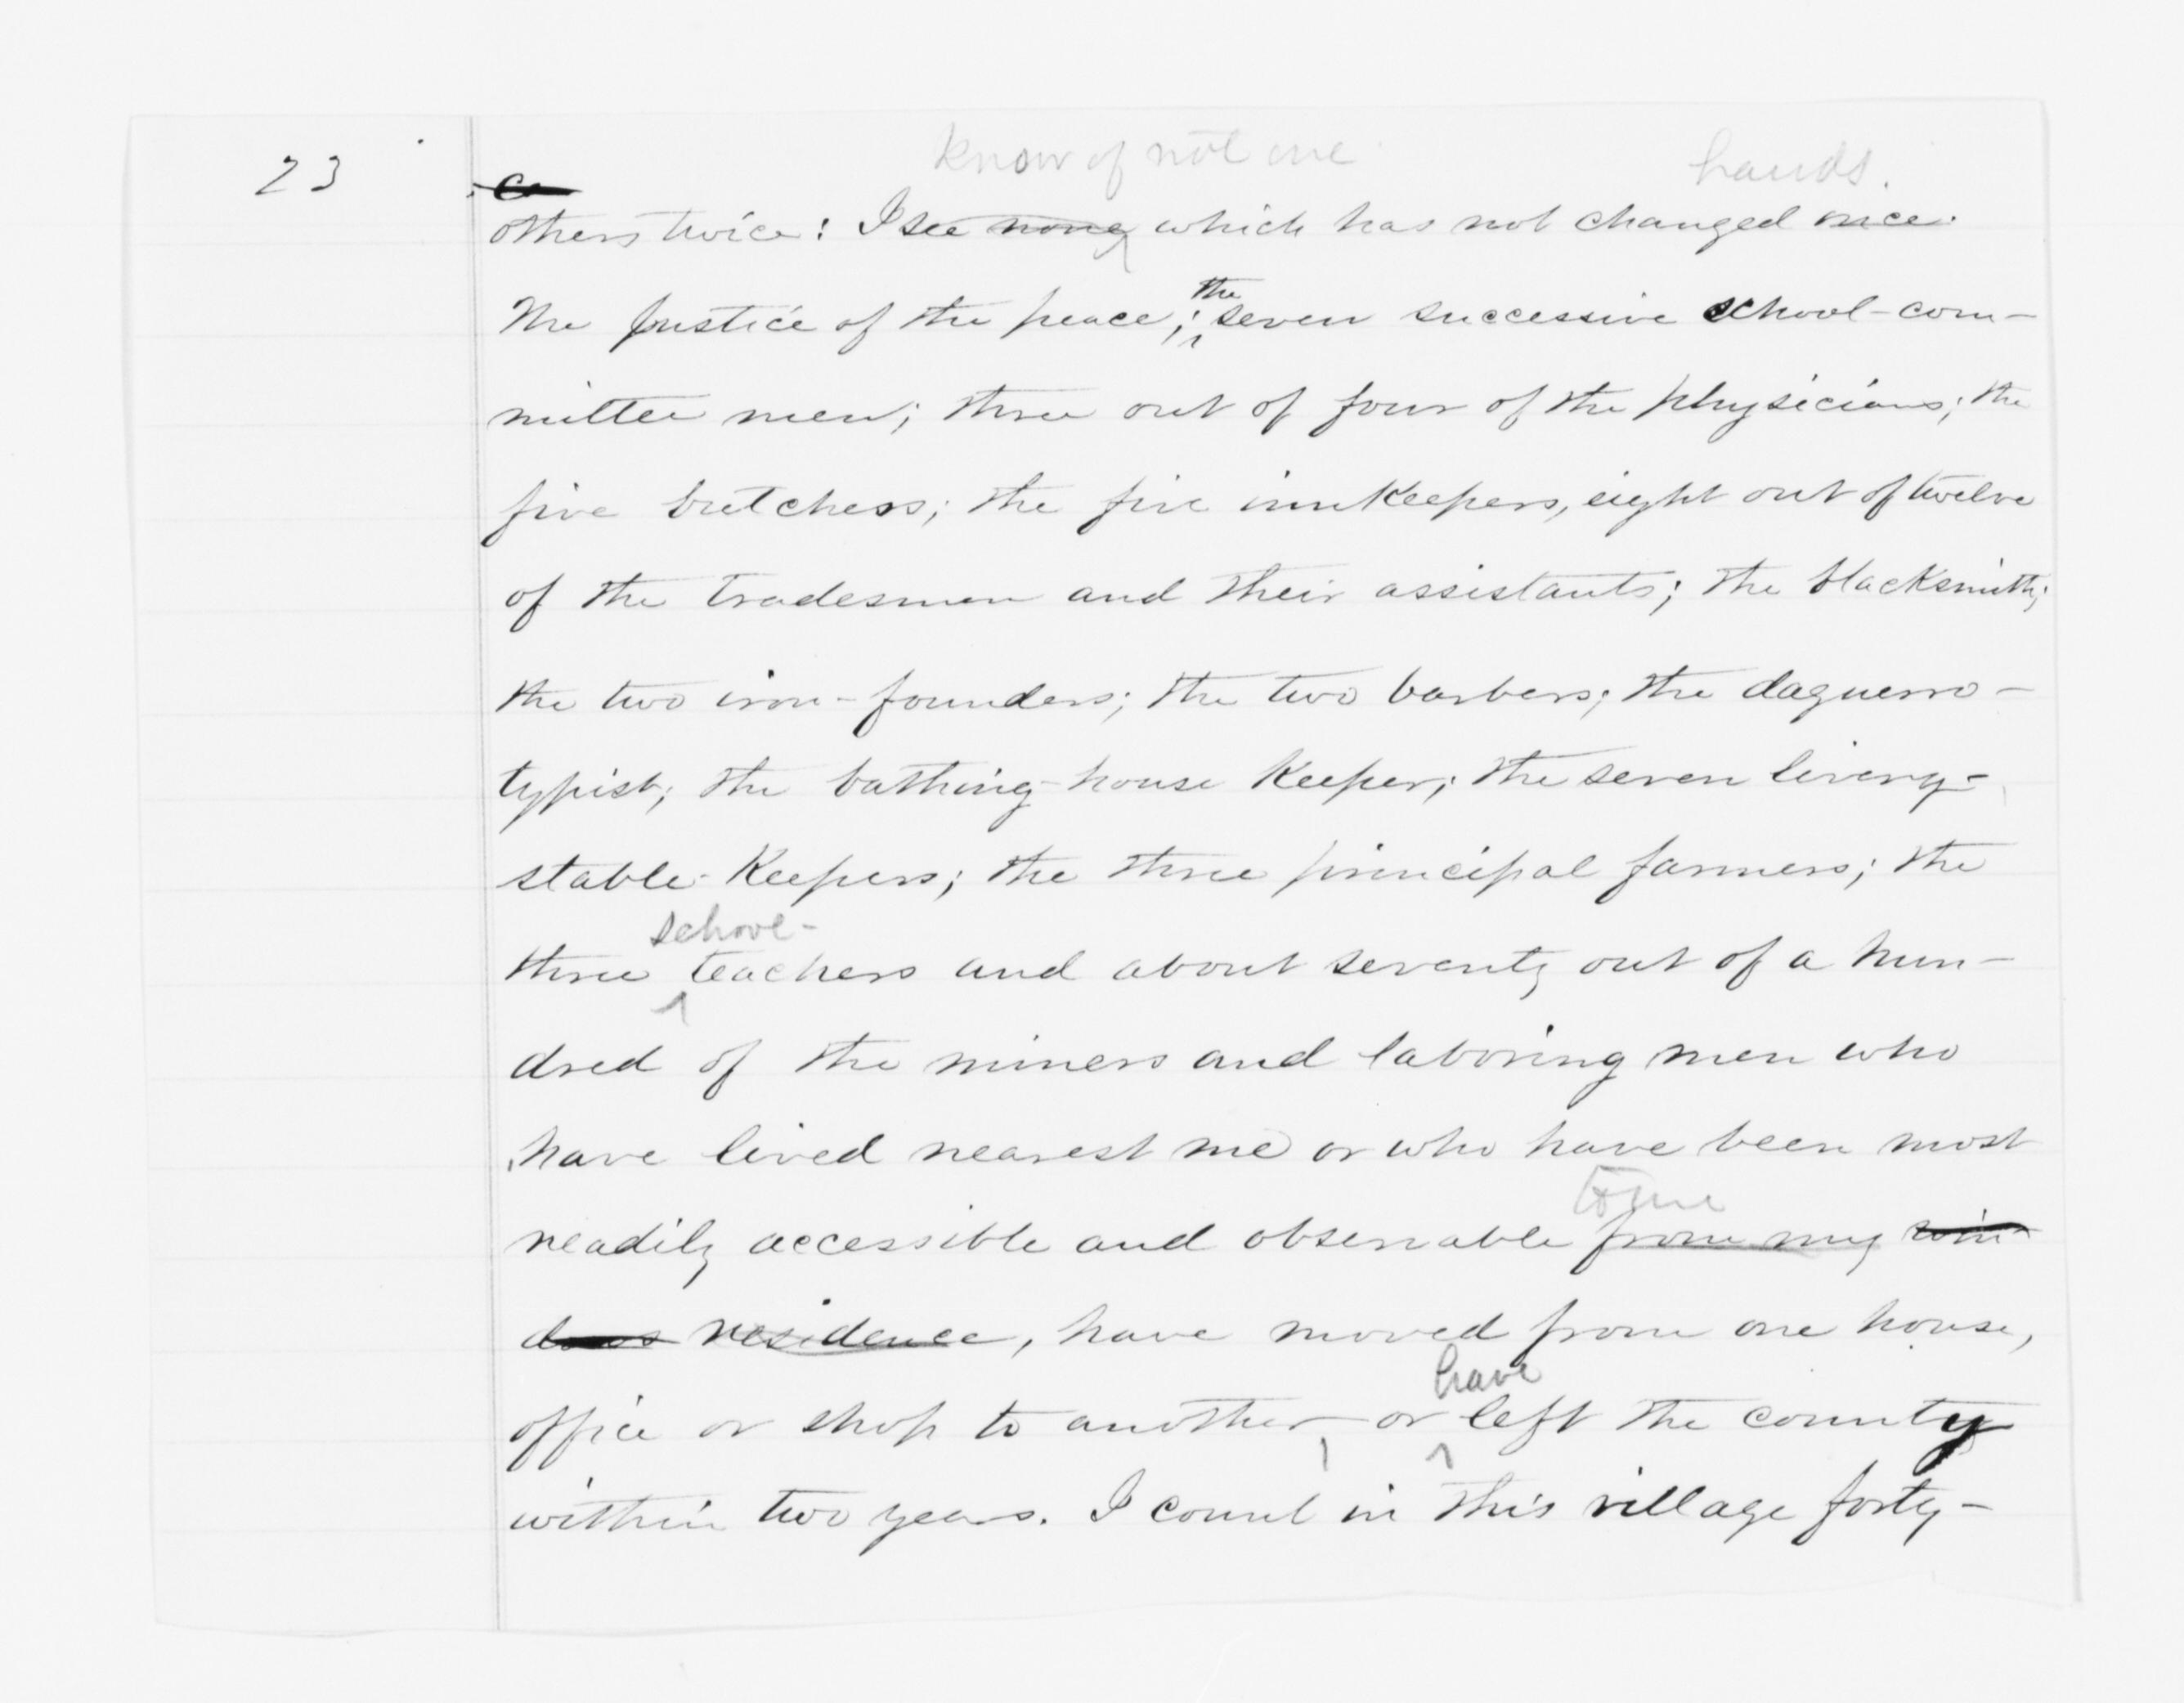 know of not one hands.
23 ce
others twice: I see none which has not changed once.
the
The justice of the peace; seven successive school-com-
mittee men; three out of four of the physicians; the
five butchers; the five innkeepers, eight out of twelve
of the tradesmen and their assistants; the blacksmith;
the two iron-founders; the two barbers; the daguerro-
typist; the bathing-house keeper; the seven livery-
stable-keepers; the three principal farmers; the
school-
three teachers and about seventy out of a hun-
dred of the miners and laboring men who
have lived nearest me or who have been most
to me
readily accessible and observable from my win
dows residence, have moved from one house,
have
office or shop to another, or left the county
within two years. I count in this village forty-